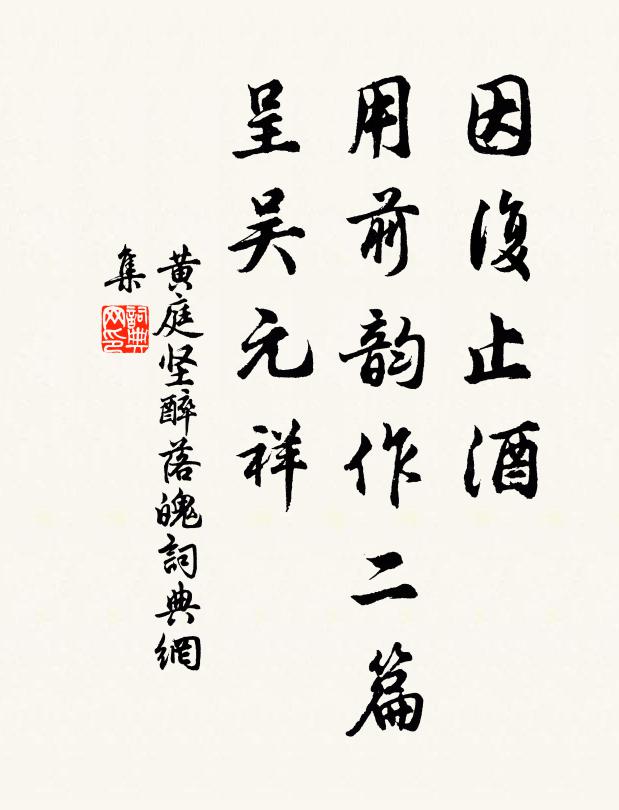 因復止酒
用前韵作二篇
呈吴元祥
黄庭坚醉落魄詞典網
集
詞典
网印